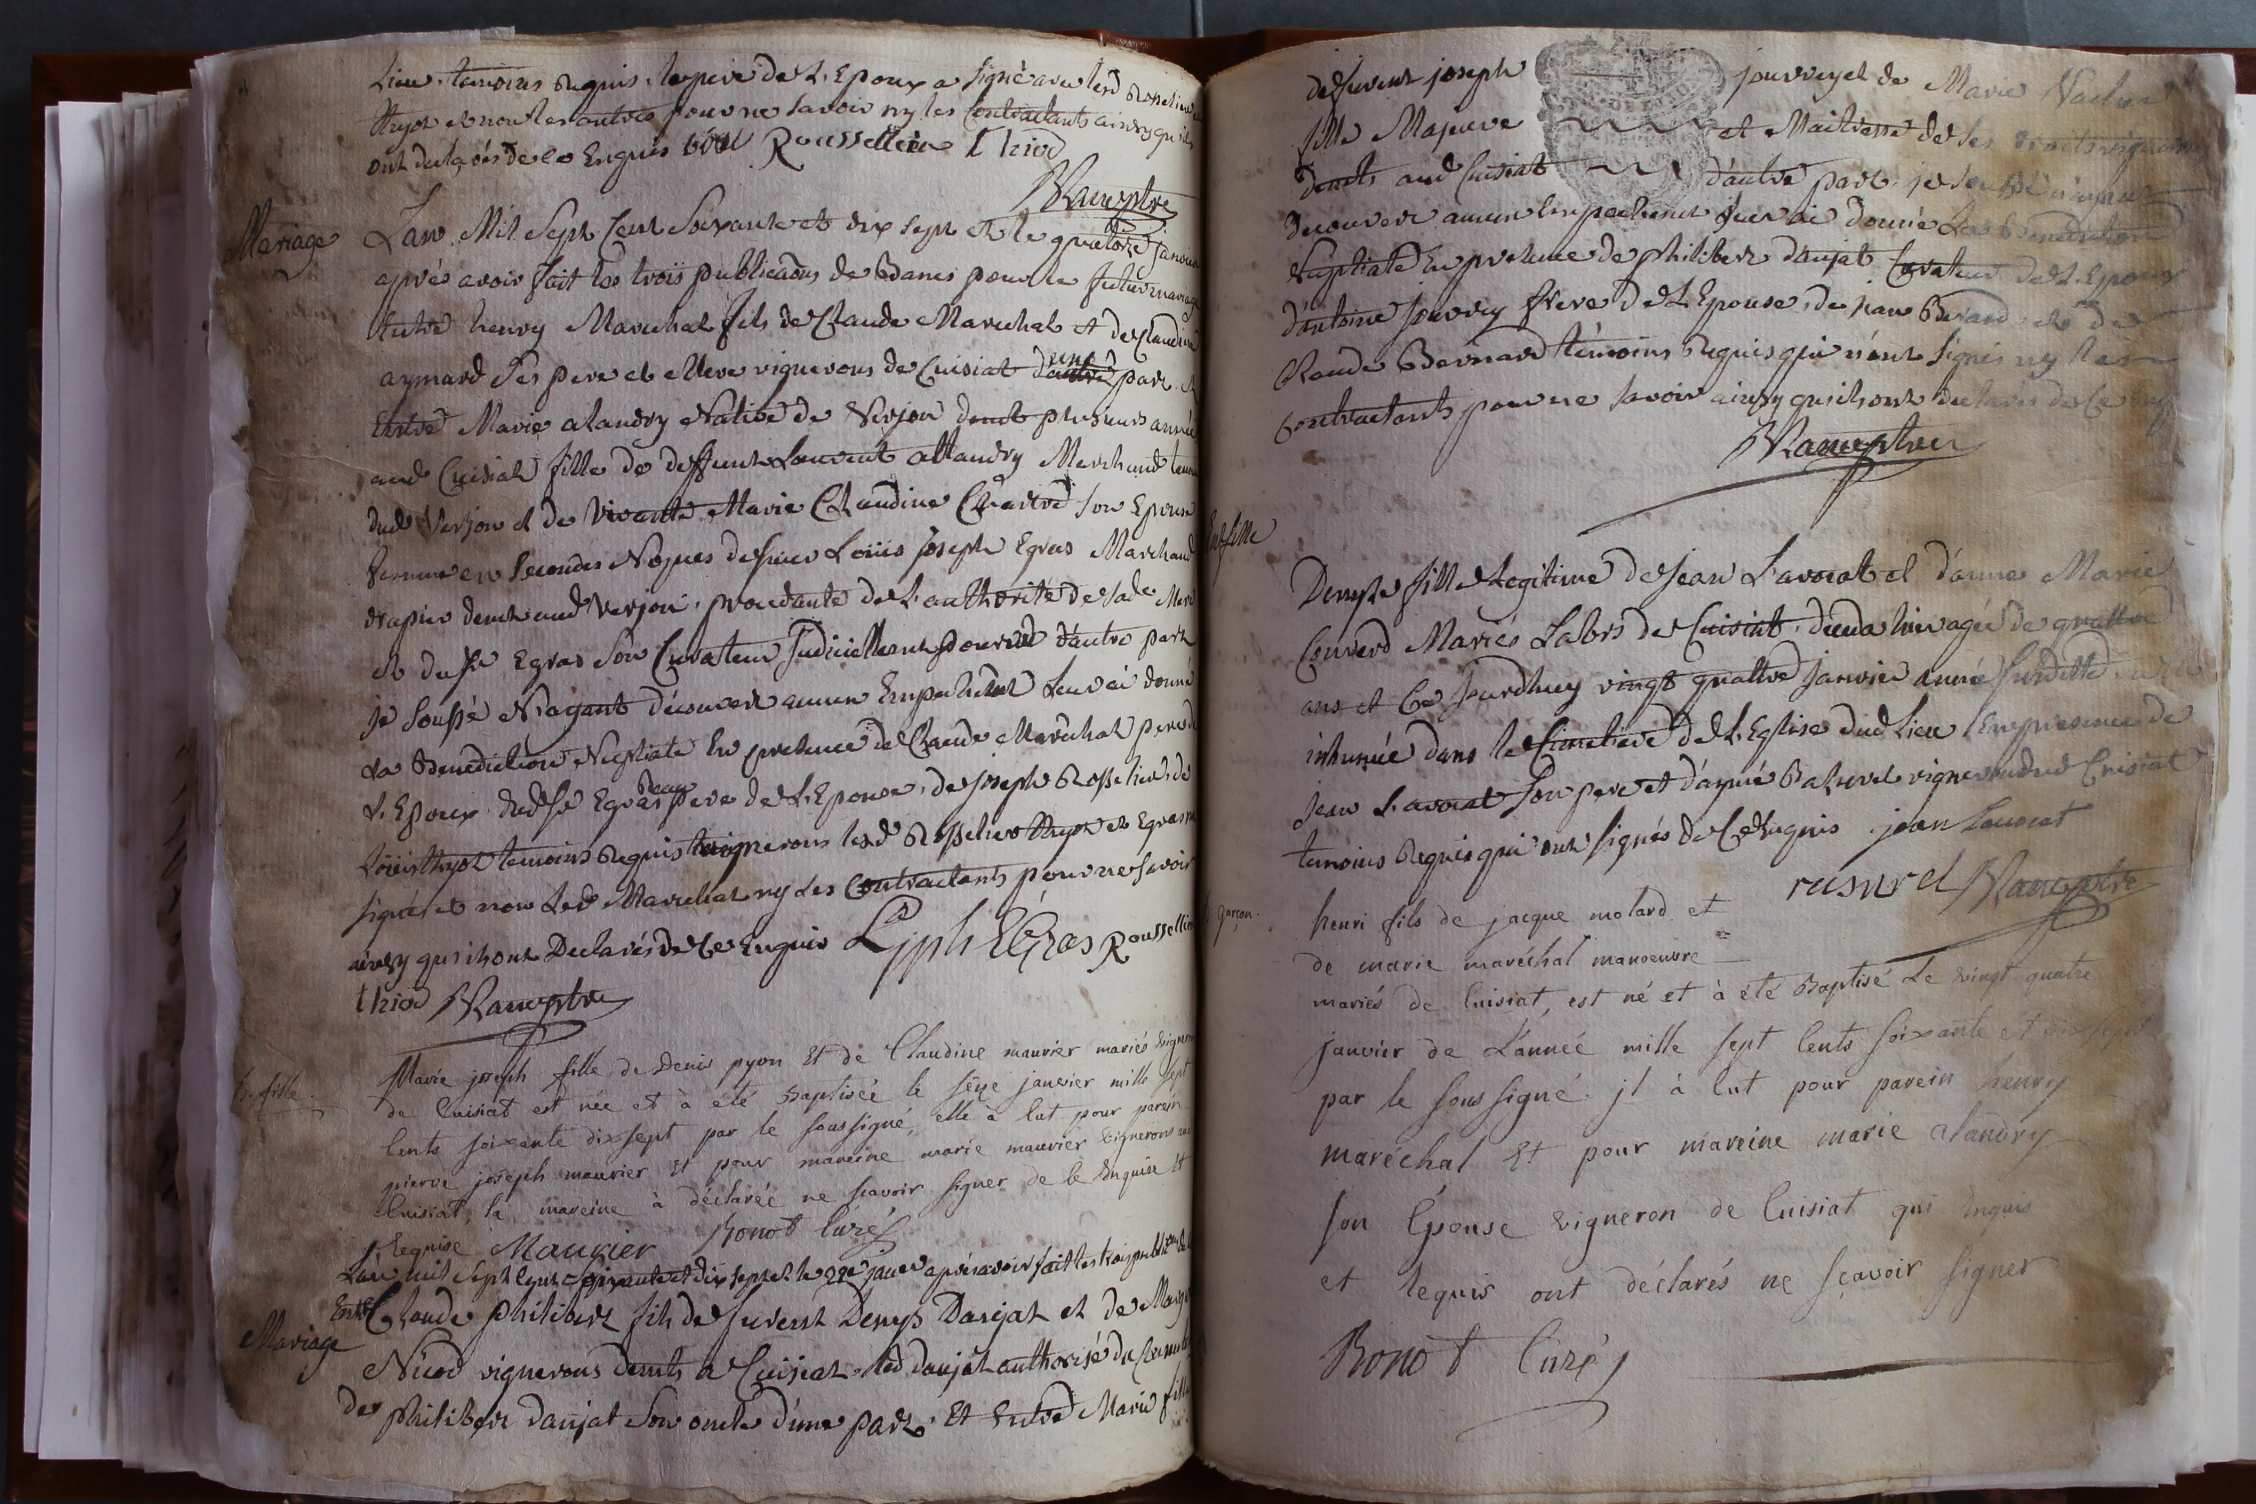 Lieu temoins Requis, le pere de L'Epoux a signé avec lesd Rosselier
thyot et non les autres pour ne savoir ny les Contractants ainsy qu'ils
ont declarés de ce Enquis Rousselleir thiod
Vancptre
Mariage
L'an Mil Sept Cent Soixante et dix sept et le quatorze janvier
aprés avoir fait les trois publicaõns de Bancs pour le futur mariage
Entre henry Marechal fils de Claude Marechal et de Claudine
aymard ses pere et Mere vignerons de Cuisiat d'une part et
Entre Marie alandry Native de Verjon demt plusieurs année
aud Cuisiat fille de deffunt Laurent allandry Marchand
dud Verjon et de vivante Marie Claudine Chartre son Epouse
femme en secondes Noçues de sieur Loüis joseph Egras Marchand
drapier demt aud Verjon, procedante de L'authorité de sade Mere
et du sr Egras son Curateur judiciellement pourvu d'autre part
je soussé N'ayant découvert aucun Empechement Leur ai donné
La Benediction Nuptiale En presence de Claude Marechal pere de
L'Epoux dudt sr Egras Beau pere de L'Epouse, de joseph Rosselier, de
Loüis thyot temoins Requis vignerons lesd Rosselier thyot et Egras
signés et non Led Marechal ny Les Contractants pour ne savoir
ainsy qu'ils ont Declarés de Ce Enquis L jph EGras Rousselleir
thiod Vancptre
B. fille.
Marie joseph fille de Denis pyon Et de Claudine maurier mariés vigneron
de Cuisiat est née et à été Baptisée le séze janvier mille sept
Cents soixante dix sept par le soussigné, elle à Eut pour parein
pierre joseph maurier et pour mareine marie maurier vignerons
Cuisiat, la mareine à déclarée ne sçavoir signer de Ce Enquise Et
Requise Maurier Bonot Curé
L'an mil sept Cent soixante et dix sept et le 22e janer aprés avoir fait les trois
Mariage
Entre Claude philibert fils de fueent Denys Danjat et de
Nicod vignerons demts a Cuisiat led danjat authorisé du
de philibert danjat son oncle d'une part. Et Entre Marie fille
de fuent joseph jouvrey et de Marie Vacher
fille Majeure et Maitresse de ses droits
demts aud Cuisiat d'autre part, je soussé n'ayant
découvert aucun Empechemt leur ai donnée La Benediction
Nuptiale En presence de philibert danjat Curateur de L'Epoux
d'antoine jouvrey frere de L'Epouse, de jean Berard et de
Claude Bernard temoins Requis qui n'ont signés ny les
Contractants pour ne savoir ainsy qu'ils ont declarés de Ce Enq
Vancptre
Ent fille
Denyse fille Legitime de jean L'avocat et d'anne Marie
Couverd Mariés Labrs de Cuisiat, deceda hier agée de quattre
ans et Ce jourdhuy vingt quattre janvier année susditte, a
inhumée dans le Cimetiere de L'Eglise dud Lieu En presence de
jean L'avocat son pere et d'aymé Rasurel vigneron dud Cuisiat
temoins Requis qui ont signés de Ce Enquis. jean Lavocat
rasurel Vancptre
B. garçon.
henri fils de jacque molard et
de marie maréchal manoeuvre
mariés de Cuisiat, est né et à été Baptisé Le vingt quatre
janvier de L'année mille sept Cents soixante et dix sept
par le sous signé. jl à Eut pour parein henry
maréchal Et pour mareine marie alandry
son Epouse vigneron de Cuisiat qui Enquis
et Requis ont déclarés ne sçavoir signer
Bonot Curé